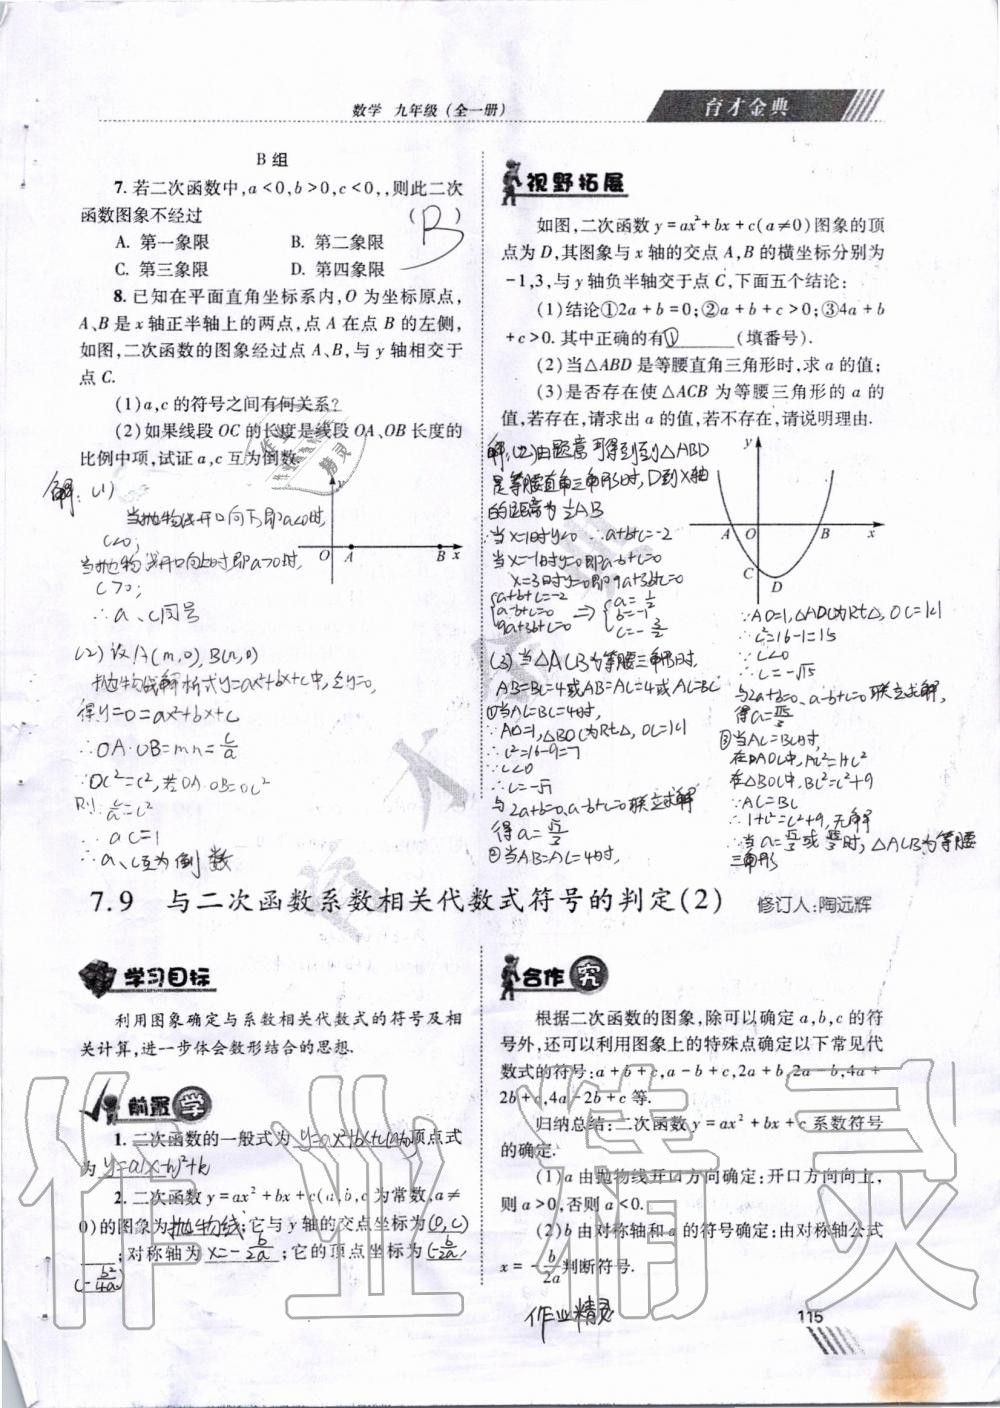 数学 九年级(全一册)
育才金典
B 组
7. 若二次函数中,a<0,b>0,c<0,,则此二次
函数图象不经过 ( B )
A. 第一象限 B. 第二象限
C. 第三象限 D. 第四象限
8. 已知在平面直角坐标系内,O 为坐标原点,
A、B 是 x 轴正半轴上的两点,点 A 在点 B 的左侧,
如图,二次函数的图象经过点 A、B,与 y 轴相交于
点 C.
(1)a,c 的符号之间有何关系?
(2)如果线段 OC 的长度是线段 OA、OB 长度的
比例中项,试证 a,c 互为倒数.
解:(1)
当抛物线开口向下即a<0时,
c<0;
当抛物线开口向上时即a>0时,
c>0;
∴a、c同号
y
O A B x
(2)设A(m,0),B(n,0)
抛物线解析式y=ax²+bx+c中,令y=0,
得y=0=ax²+bx+c
∴OA·OB=mn=c/a
∵OC²=c²,若OA·OB=OC²
则:c/a=c²
∴ac=1
∴a、c互为倒数
视野拓展
如图,二次函数 y=ax²+bx+c(a≠0)图象的顶
点为 D,其图象与 x 轴的交点 A,B 的横坐标分别为
-1,3,与 y 轴负半轴交于点 C,下面五个结论:
(1)结论①2a+b=0;②a+b+c>0;③4a+b
+c>0.其中正确的有 ① (填番号).
(2)当△ABD 是等腰直角三角形时,求 a 的值;
(3)是否存在使△ACB 为等腰三角形的 a 的
值,若存在,请求出 a 的值,若不存在,请说明理由.
解:(2)由题意可得到△ABD
是等腰直角三角形时,D到X轴
的距离为½AB
当x=1时y<0 ∴a+b+c=-2
当x=-1时y=0即a-b+c=0
x=3时y=0即9a+3b+c=0
a+b+c=-2
a-b+c=0
9a+3b+c=0
⇒ a=1/2
b=-1
c=-3/2
(3)当△ACB为等腰三角形时,
AB=BC=4或AB=AC=4或AC=BC
①当AC=BC=4时,
∵AO=1,△BOC为Rt△,OC=|c|
∴c²=16-9=7
∵c<0
∴c=-√7
与2a+b=0、a-b+c=0联立求解
得a=√7/3
②当AB=AC=4时,
y
A O B x
C
D
∵AO=1,△AOC为Rt△,OC=|c|
∴c²=16-1=15
∵c<0
∴c=-√15
与2a+b=0、a-b+c=0联立求解,
得a=√15/3
③当AC=BC时,
在△AOC中,AC²=1+c²
在△BOC中,BC²=c²+9
∵AC=BC
∴1+c²=c²+9,无解
∴当a=√7/3或√15/3时,△ACB为等腰
三角形
7.9 与二次函数系数相关代数式符号的判定(2) 修订人:陶远辉
学习目标
利用图象确定与系数相关代数式的符号及相
关计算,进一步体会数形结合的思想.
前置学
1. 二次函数的一般式为 y=ax²+bx+c(a≠0) 顶点式
为 y=a(x-h)²+k
2. 二次函数 y=ax²+bx+c(a,b,c 为常数,a≠
0)的图象为抛物线;它与 y 轴的交点坐标为(0,c)
;对称轴为 x=-b/2a ;它的顶点坐标为 (-b/2a,
合作 究
根据二次函数的图象,除可以确定 a,b,c 的符
号外,还可以利用图象上的特殊点确定以下常见代
数式的符号:a+b+c,a-b+c,2a+b,2a-b,4a+
2b+c,4a-2b+c 等.
归纳总结:二次函数 y=ax²+bx+c 系数符号
的确定.
(1)a 由抛物线开口方向确定:开口方向向上,
则 a>0,否则 a<0.
(2)b 由对称轴和 a 的符号确定:由对称轴公式
x=-b/2a判断符号.
作业精灵
115
作业精灵
育才金典